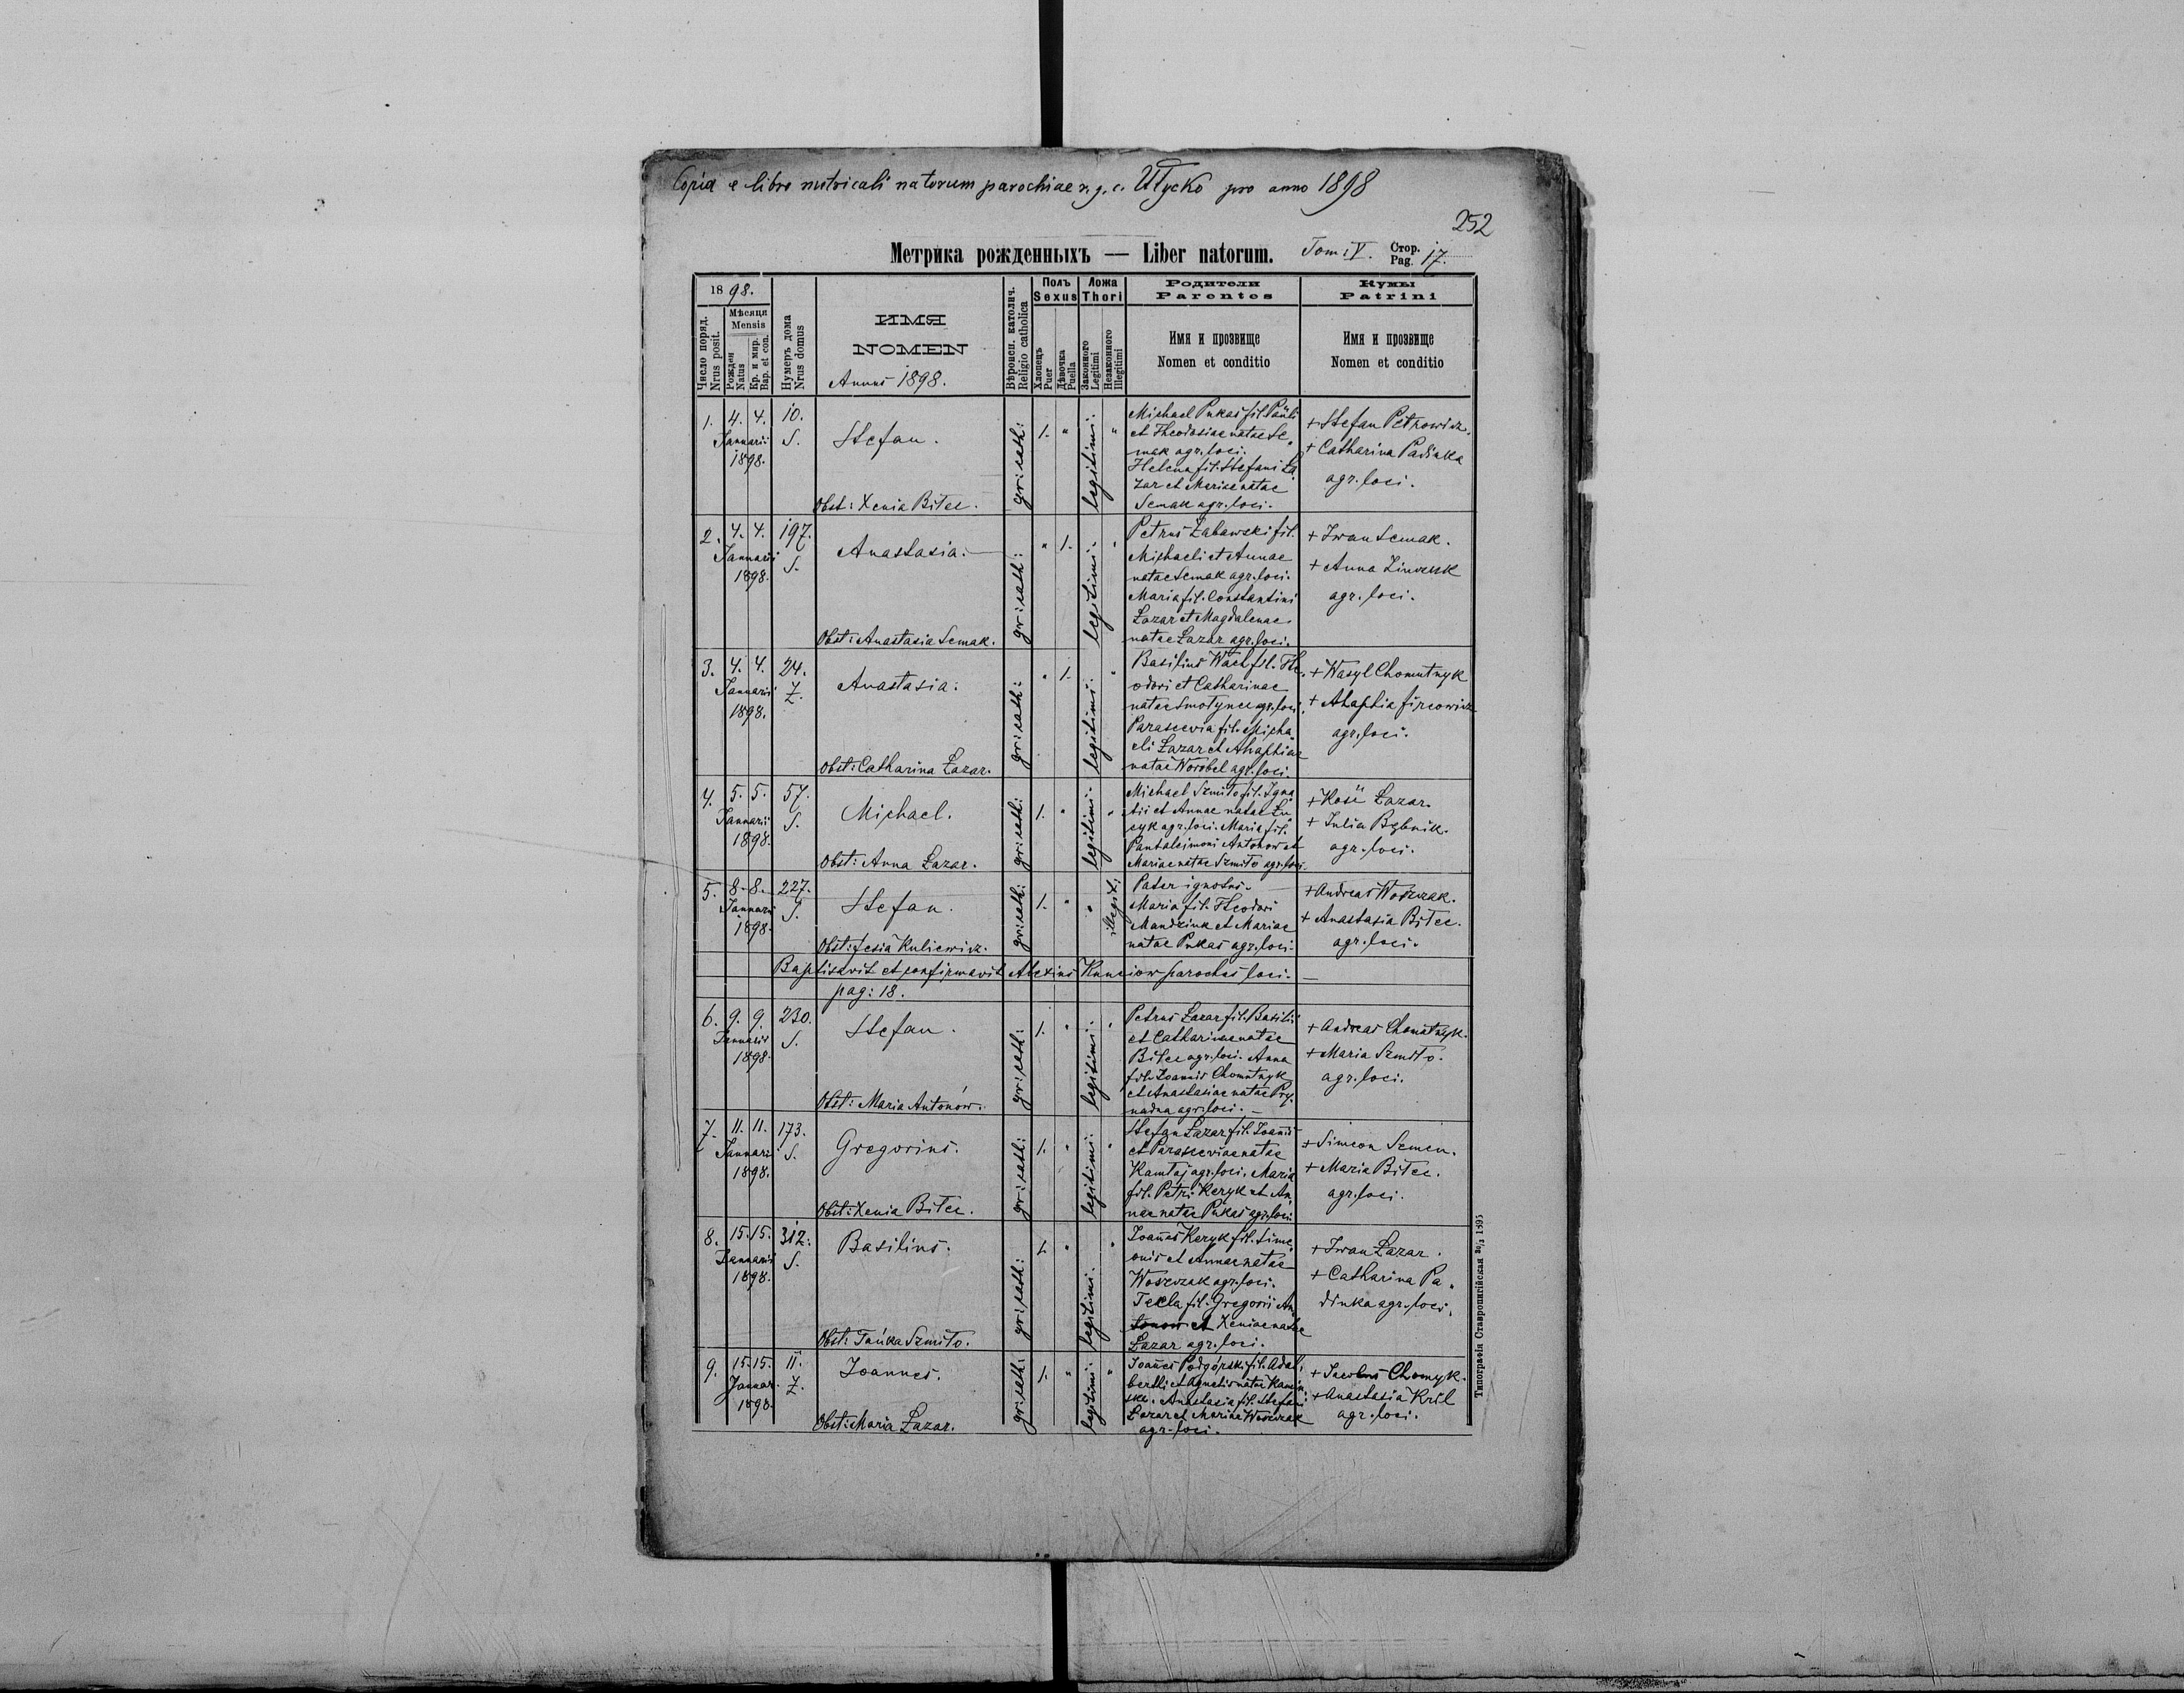 Copia e libro metricali natorum parochiae r. g. c. Ułycko pro anno 1898
252
Метрика рожденныхъ — Liber natorum. Tom: V. Стор. Pag. 17.
1898.
Число поряд. Nrus posit.
Мѣсяця Mensis
Рожден Natus
Кр. и мир. Bap. et con.
Нумеръ дома Nrus domus
ИМЯ
NOMEN
Annus 1898.
Вѣроисп. католич. Religio catholica
Полъ Sexus
Хлопецъ Puer
Дѣвочка Puella
Ложа Thori
Законного Legitimi
Незаконного Illegitimi
Родители
Parentes
Имя и прозвище
Nomen et conditio
Кумы
Patrini
Имя и прозвище
Nomen et conditio
1. 4. 4. Januarii 1898. 10. S.
Stefan.
Obst: Xenia Bitec.
gr: cath: 1. " legitimi: "
Michael Pukas fil. Pauli
et Theodosiae natae Se„
mak agr. loci.
Helena fil. Stefani Ła„
zar et Mariae natae
Semak agr. loci.
+ Stefan Petrowicz.
+ Catharina Padinka
agr. loci.
2. 4. 4. Januarii 1898. 197. S.
Anastasia.
Obst: Anastasia Semak.
gr: cath: " 1. legitimi: "
Petrus Zabawski fil.
Michaeli et Annae
natae Semak agr. loci.
Maria fil. Constantini
Łazar et Magdalenae
natae Łazar agr. loci.
+ Iwan Semak.
+ Anna
agr. loci.
3. 4. 4. Januarii 1898. 24. Z.
Anastasia.
Obst: Catharina Łazar.
gr: cath: " 1. legitimi: "
Basilius Wach fil. The„
odori et Catharinae
natae Smotynec agr. loci.
Parascevia fil. Micha„
eli Łazar et Ahaphiae
natae Worobel agr. loci.
+ Wasyl Chomutnyk
+ Ahaphia
agr. loci.
4. 5. 5. Januarii 1898. 57. S.
Michael.
Obst: Anna Łazar.
gr: cath: 1. " legitimi: "
Michael Szmiło fil. Igna„
tii et Annae natae Łu„
cyk agr. loci. Maria fil.
Pantaleimoni Antonow et
Mariae natae Szmiło agr. loci.
+ Kość Łazar.
+ Julia Bębnik.
agr. loci.
5. 8. 8. Januarii 1898. 227. S.
Stefan.
Obst: Kuliewicz.
gr: cath: 1. " " illegit:
Pater ignotus.
Maria fil. Theodori
Mandzink et Mariae
natae Pukas agr. loci.
+ Andreas Woszczak.
+ Anastasia Bitec.
agr. loci.
Baptisavit et confirmavit Alexius Kunciow parochus loci.
pag: 18.
6. 9. 9. Januarii 1898. 230. S.
Stefan.
Obst: Maria Antonów.
gr: cath: 1. " legitimi: "
Petrus Łazar fil. Basilii
et Catharinae natae
Bitec agr. loci. Anna
fil. Joannis Chomutnyk
et Anastasiae natae Pry„
nadna agr. loci.
+ Andreas Chomutnyk.
+ Maria Szmiło.
agr. loci.
7. 11. 11. Januarii 1898. 173. S.
Gregorius.
Obst: Xenia Bitec.
gr: cath: 1. " legitimi: "
Stefan Łazar fil. Joannis
et Parasceviae natae
Kamtaj agr. loci. Maria
fil. Petri Keryk et An„
nae natae Pukas agr. loci.
+ Simeon Semen.
+ Maria Bitec.
agr. loci.
8. 15. 15. Januarii 1898. 312. S.
Basilius.
Obst: Tańka Szmiło.
gr: cath: 1. " legitimi: "
Joannes Keryk fil. Sime„
onis et Annae natae
Woszczak agr. loci.
Tecla fil. Gregorii An„
tonow et Xeniae natae
Łazar agr. loci.
+ Iwan Łazar.
+ Catharina Pa„
dinka agr. loci.
9. 15. 15. Januar. 1898. 11. Z.
Joannes.
Obst: Maria Łazar.
gr: cath: 1. " legitimi: "
Joannes Podgórski fil. Adal„
berti et Agnetis natae Kamin„
ska. Anastasia fil. Stefani
Łazar et Marina Woszczak
agr. loci.
+ Jacobus Chomyk.
+ Anastasia Kril
agr. loci.
Типографія Ставропигійская 20/3 1895